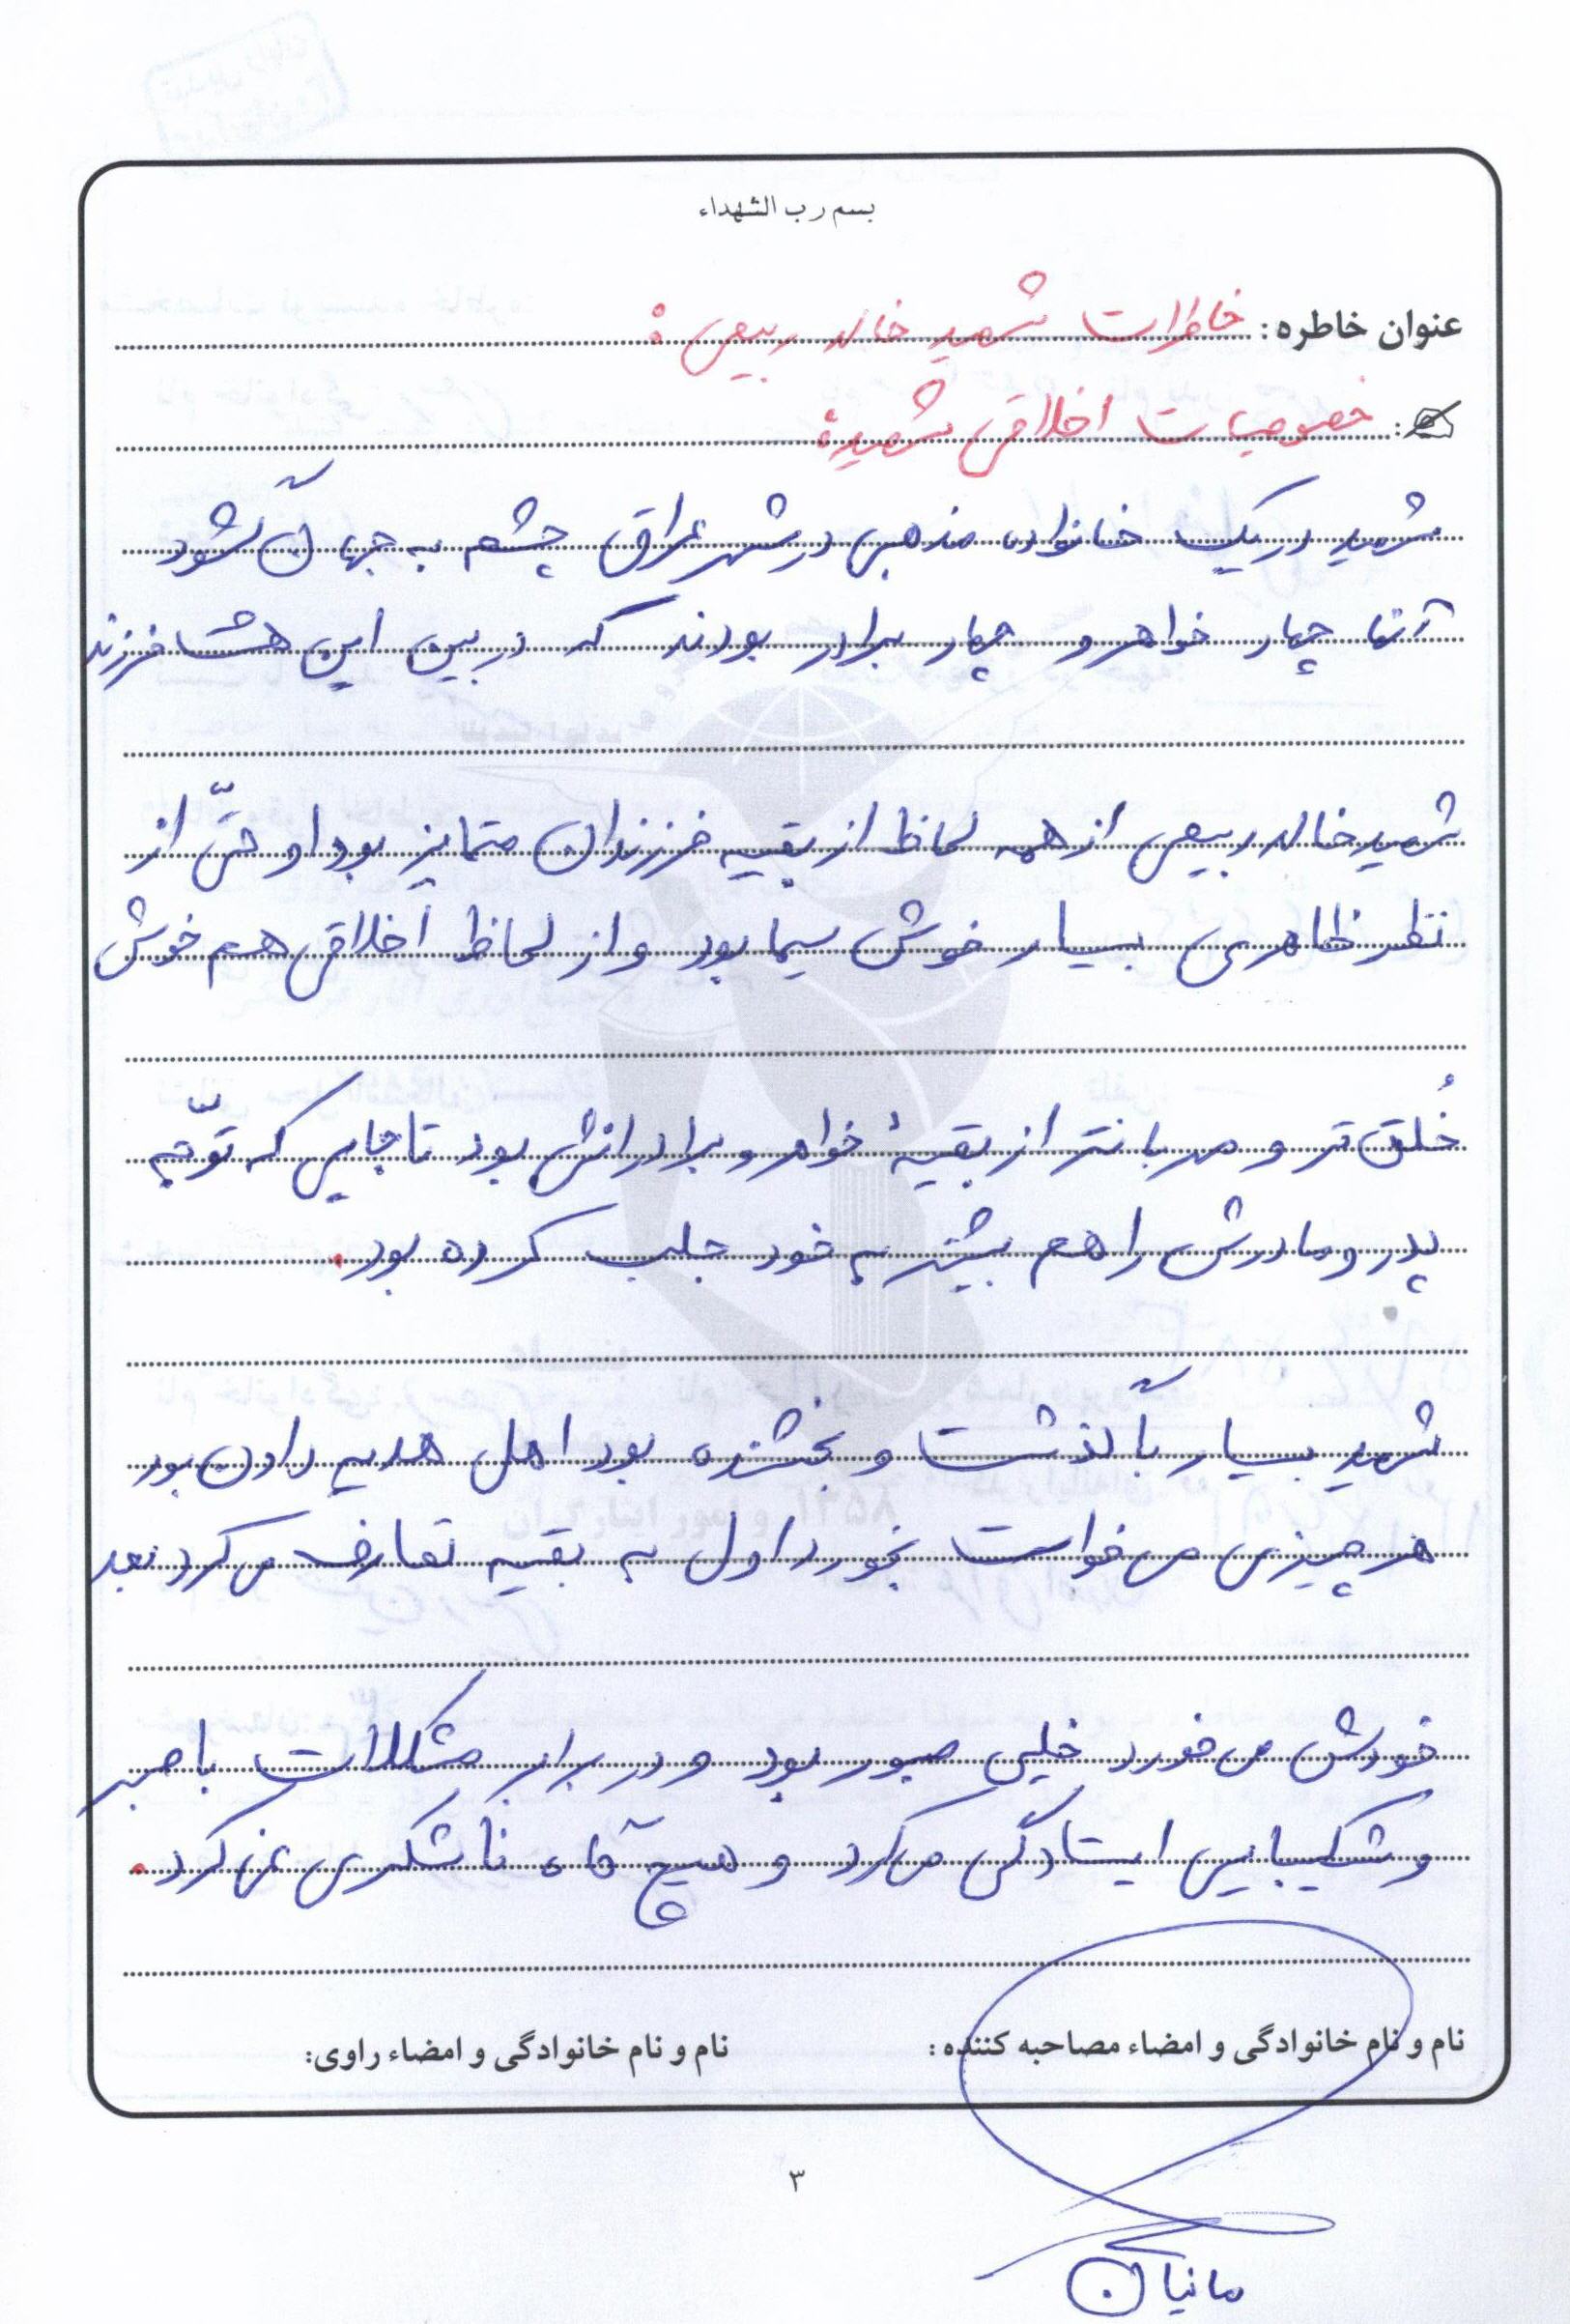 بسم رب الشهداء
عنوان خاطره: خاطرات شهید خالد ربیعی:
خصوصیات اخلاقی شهید:
شهید در یک خانواده مذهبی در شهر عراق چشم به جهان گشود
آنها چهار خواهر و چهار برادر بودند که در بین این هشت فرزند
شهید خالد ربیعی از همه لحاظ از بقیه فرزندان متمایز بود او حتّی از
نظر ظاهری بسیار خوش سیما بود و از لحاظ اخلاقی هم خوش
خُلق تر و مهربانتر از بقیهٔ خواهر و برادرانش بود تا جایی که توّجه
پدر و مادرش را هم بیشتر به خود جلب کرده بود.
شهید بسیار با گذشت و بخشنده بود اهل هدیه دادن بود
هر چیزی می خواست بخورد اول به بقیه تعارف می کرد بعد
خودش می خورد خیلی صبور بود و در برابر مشکلات با صبر
و شکیبایی ایستادگی می کرد و هیچ گاه ناشکری نمی کرد.
نام و نام خانوادگی و امضاء مصاحبه کننده:
نام و نام خانوادگی و امضاء راوی:
۳
مانیان